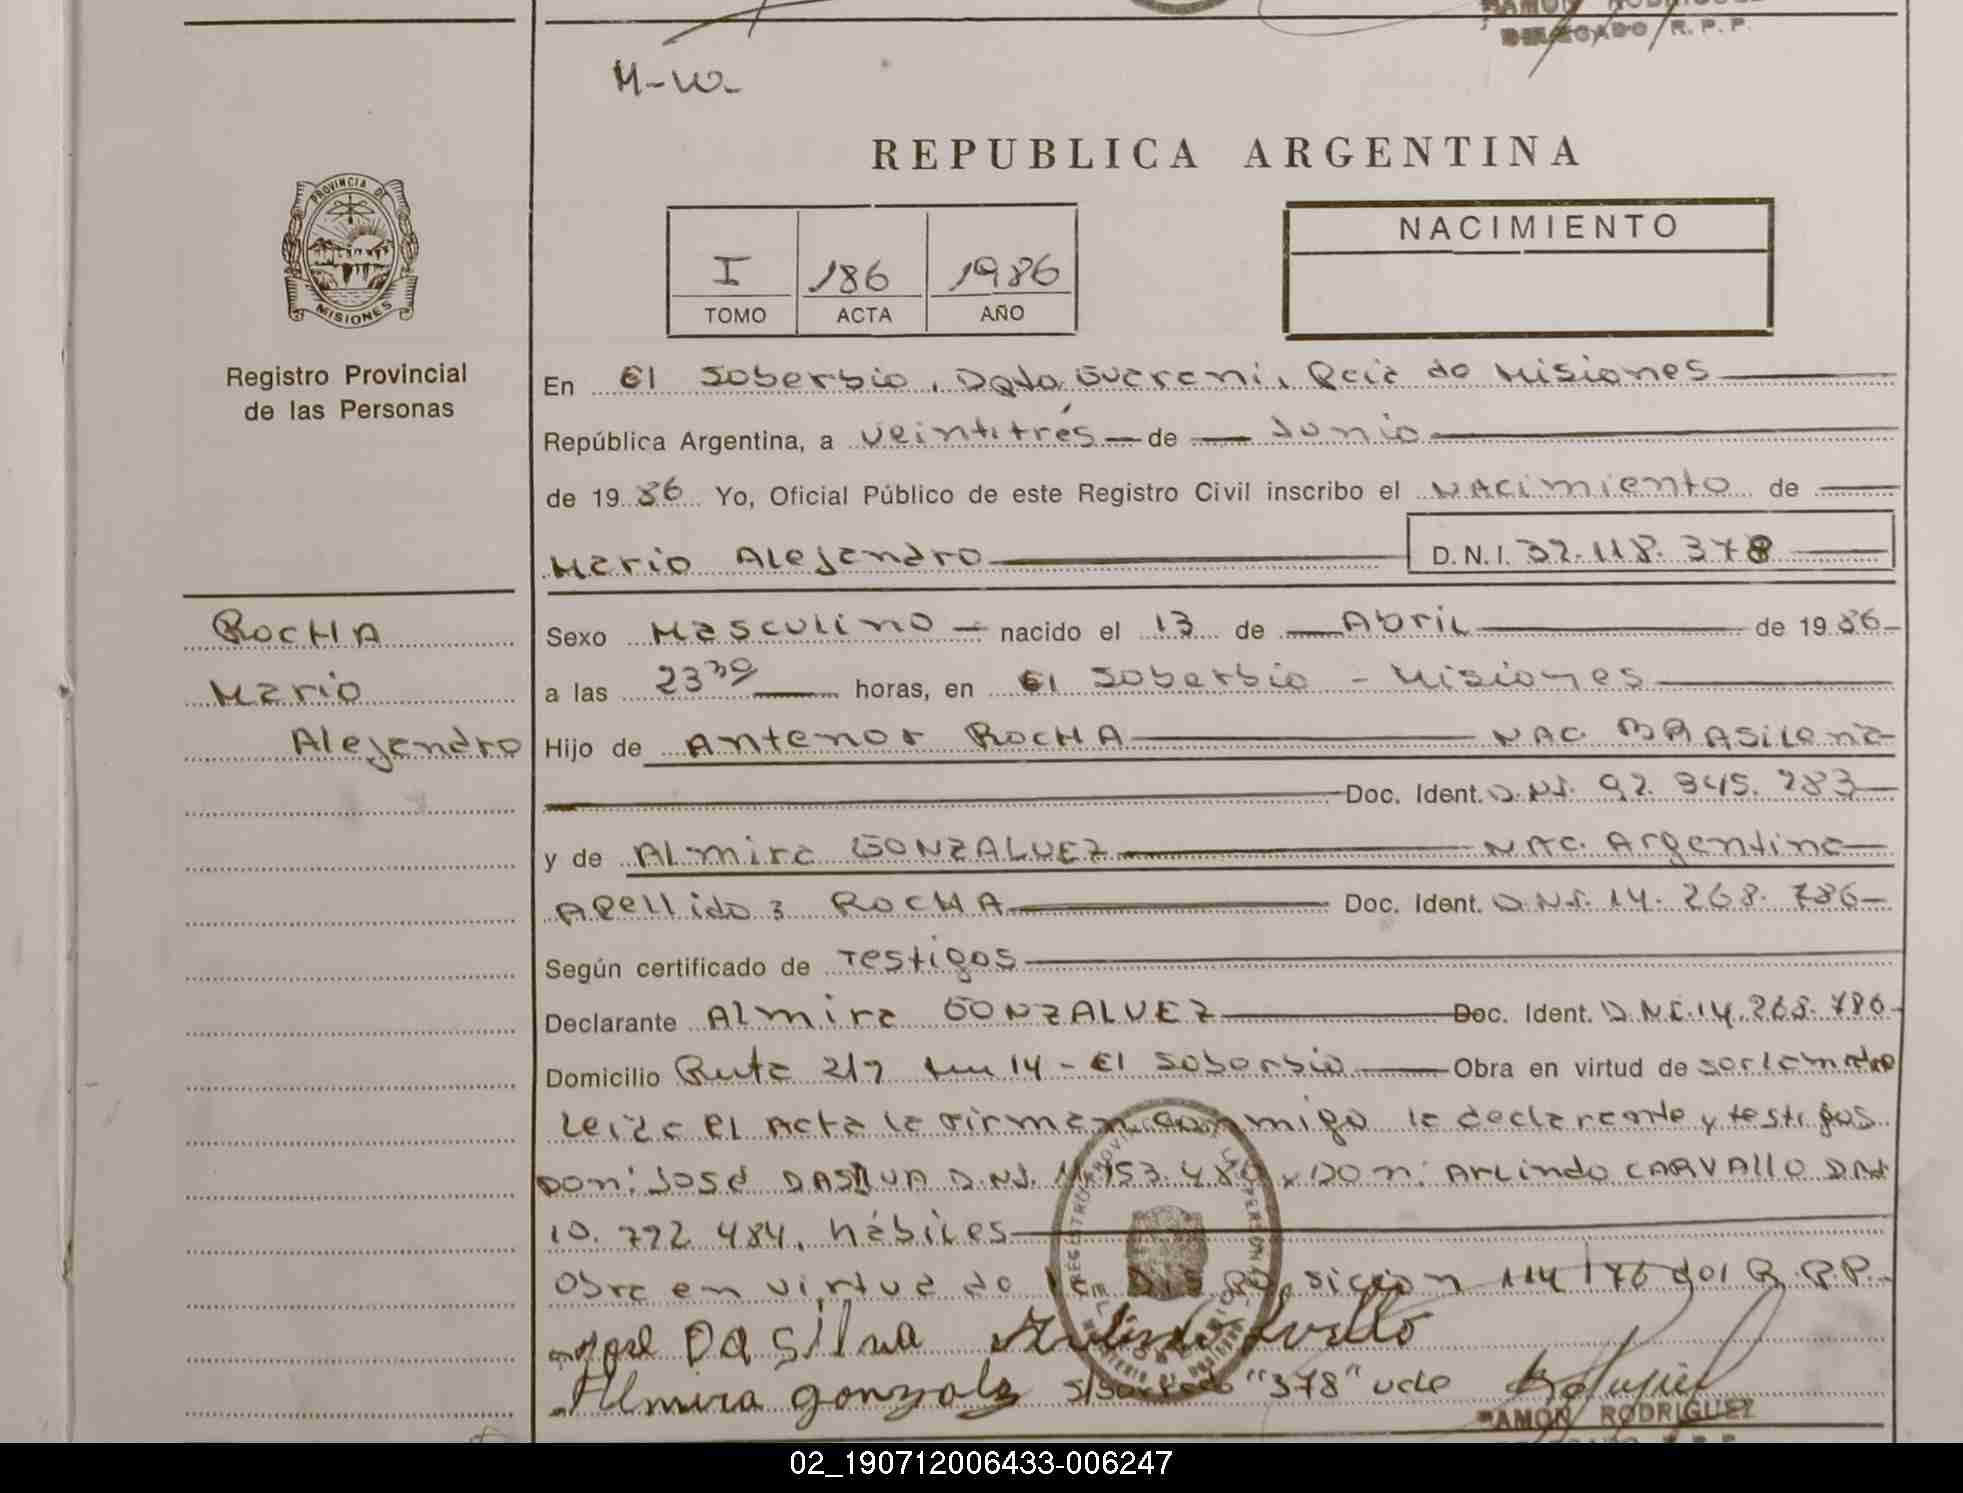 RAMON RODRIGUEZ
DELEGADO R. P. P.
M-W-
REPUBLICA ARGENTINA
PROVINCIA DE
MISIONES
NACIMIENTO
I 186 1986
TOMO ACTA AÑO
Registro Provincial
de las Personas
En El Soberbio, Dpto Guarani, Pcia de Misiones
República Argentina, a veintitrés de Junio
de 19 86 Yo, Oficial Público de este Registro Civil inscribo el NACimiento de
Mario Alejandro D.N.I. 32.118.378
ROCHA
Mario
Alejandro
Sexo Masculino nacido el 13 de Abril de 19 86
a las 23 30 horas, en El Soberbio - Misiones
Hijo de Antenor ROCHA NAC. BRASileña
Doc. Ident. D.N.I. 92.945.283
y de Almira GONZALVEZ NAC. Argentina
Apellido: ROCHA Doc. Ident. D.N.I. 14.268.786
Según certificado de Testigos
Declarante Almira GONZALVEZ Doc. Ident. D.N.I. 14.268.786
Domicilio Ruta 2/7 km 14 - El Soberbio Obra en virtud de ser la madre
Leida el Acta la firman conmigo la declarante y testigos
Don: José DASILVA D.N.I. 11.153.480 y Don: Arlindo CARVALLO D.N.I.
10.772.484, hábiles
Obra en virtud de la Disposicion 114/76 del R.P.P.
José Da Silva
Almira gonzalz S/Borrado "378" vale
RAMON RODRIGUEZ
02_190712006433-006247